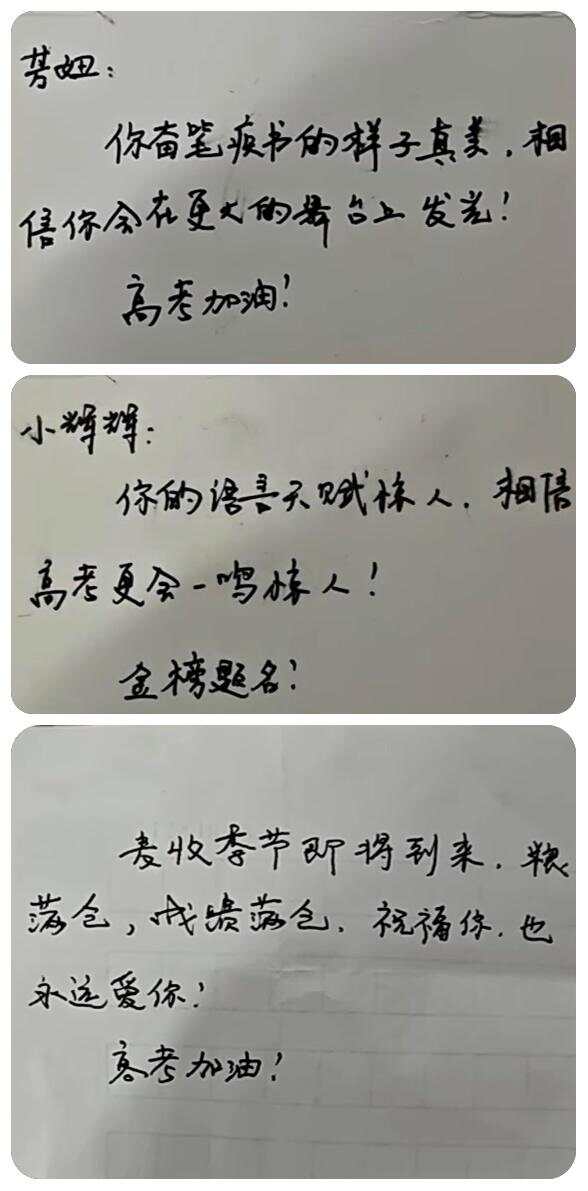 芳妞：
你奋笔疾书的样子真美，相
信你会在更大的舞台上发光！
高考加油！
小辉辉：
你的语言天赋惊人，相信
高考更会一鸣惊人！
金榜题名！
麦收季节即将到来，粮
满仓，成绩满仓，祝福你，也
永远爱你！
高考加油！